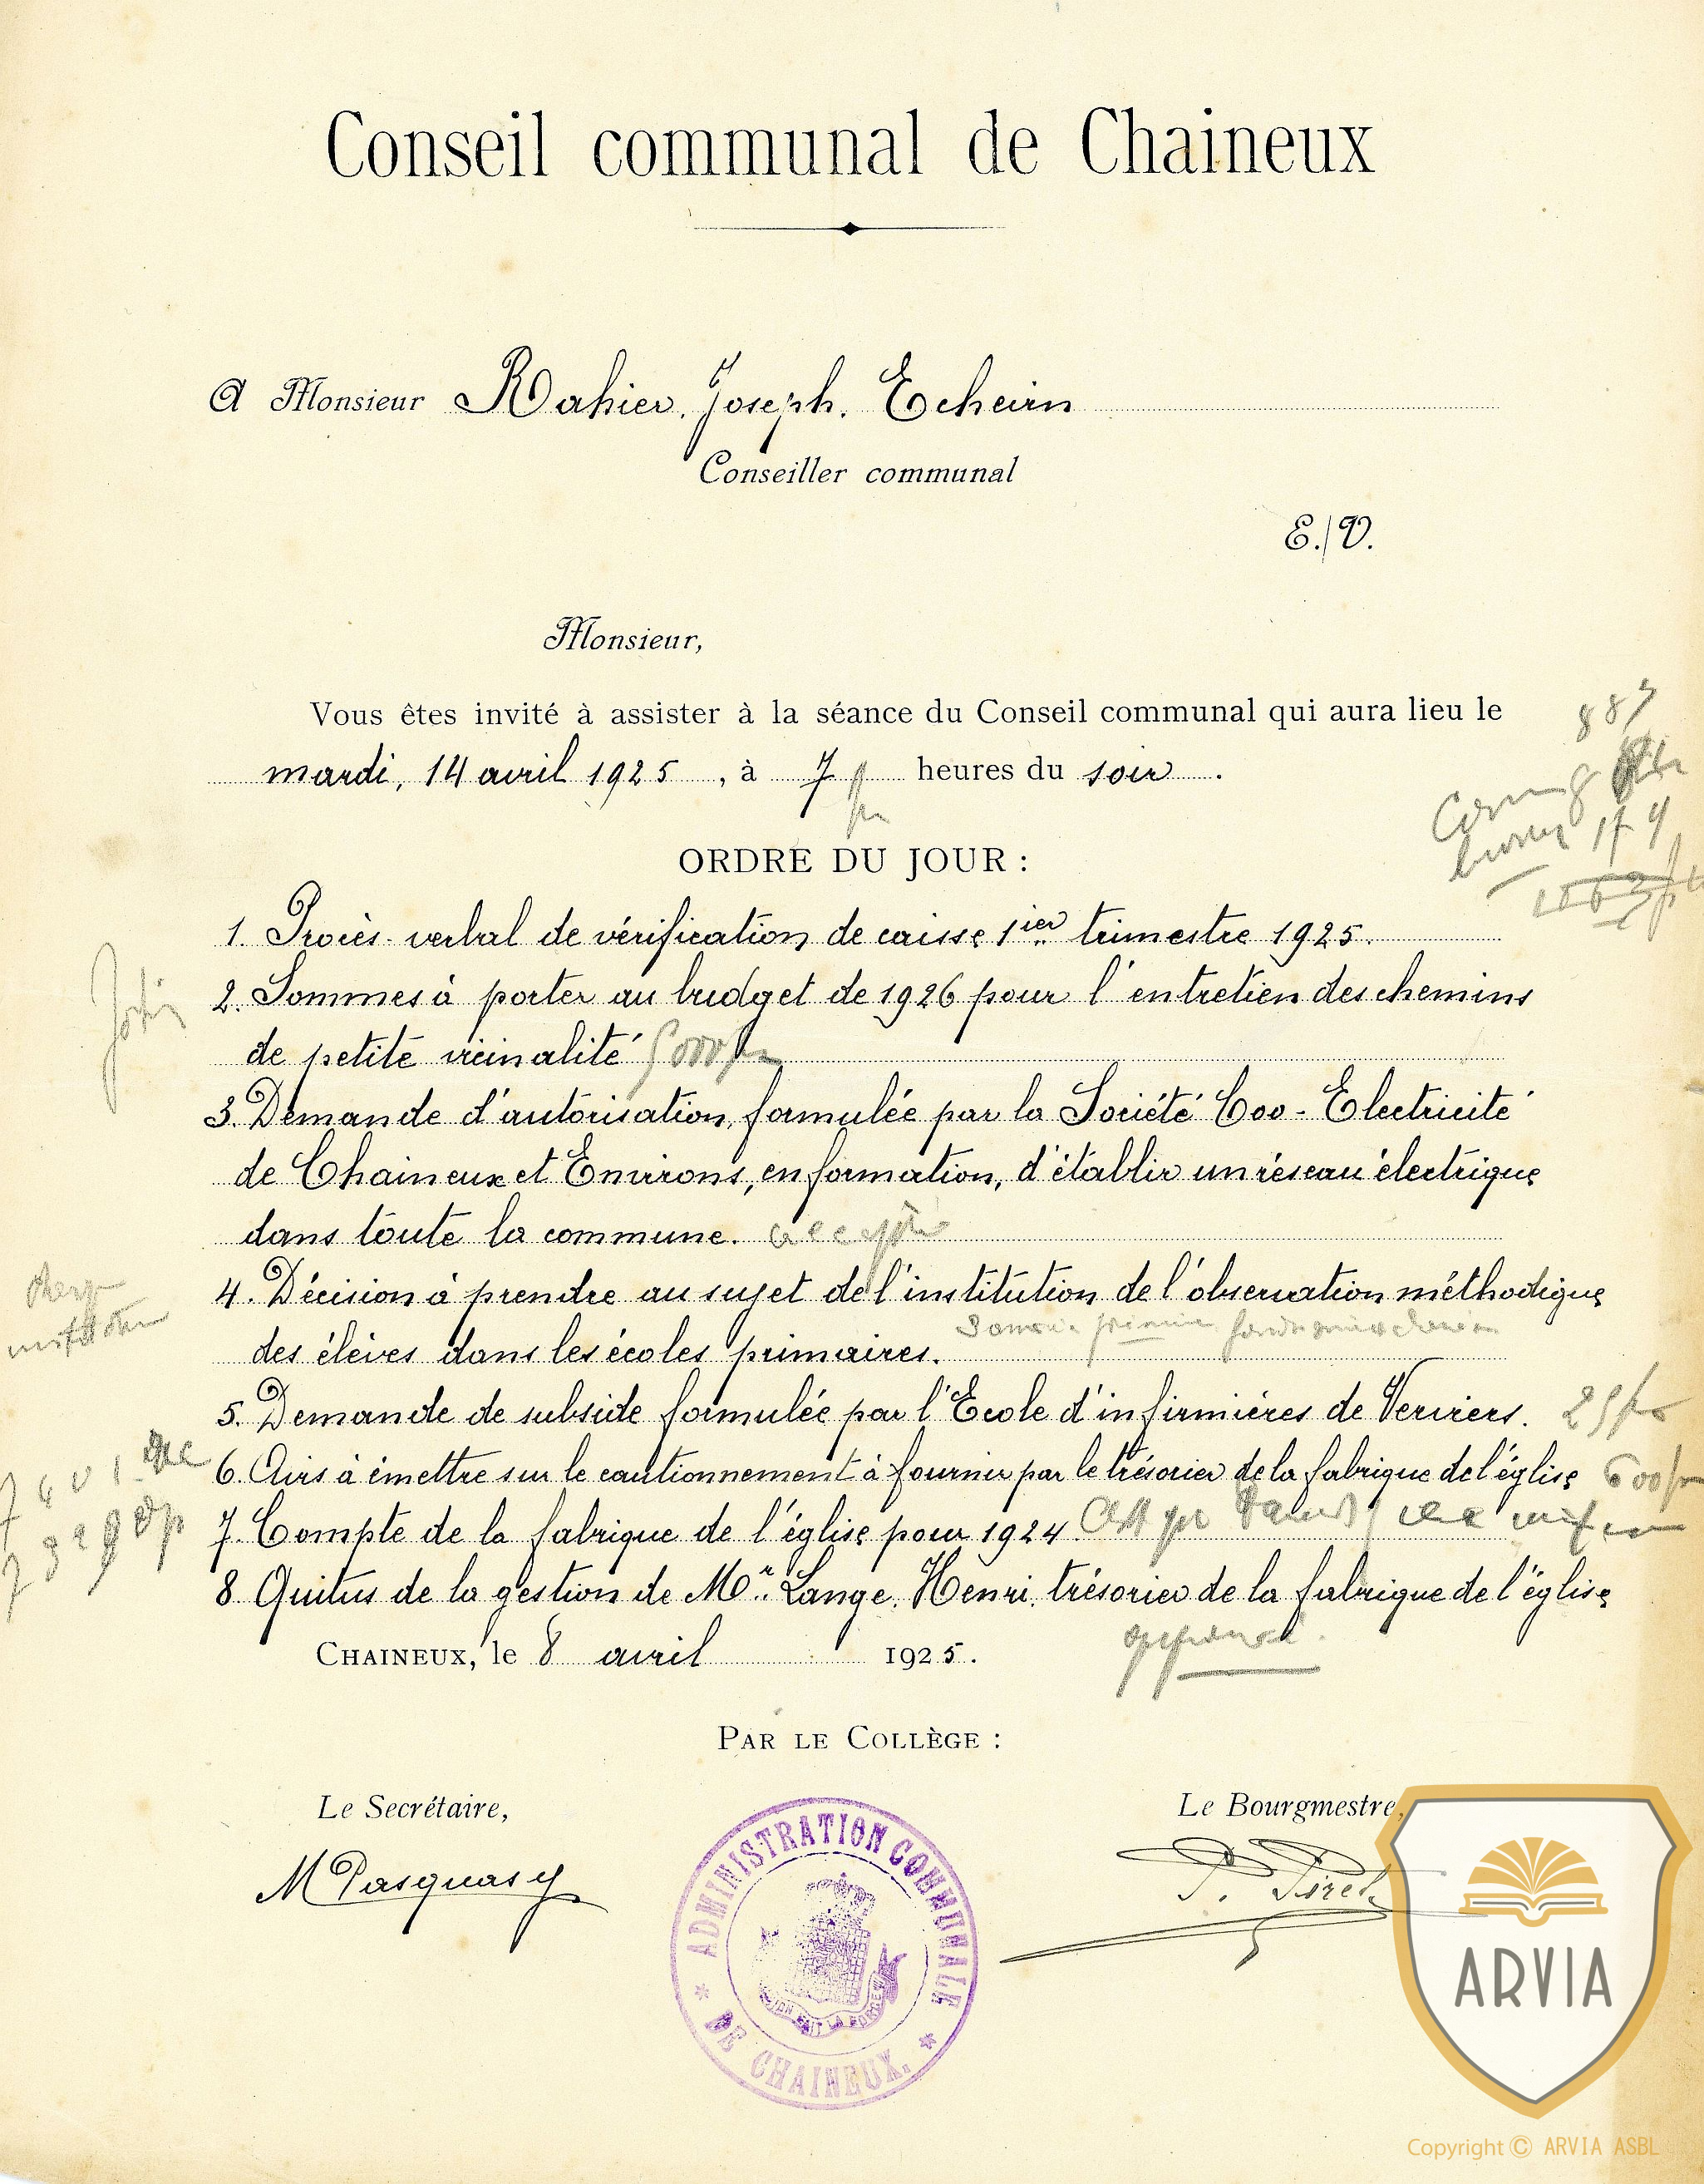 Conseil communal de Chaineux
A Monsieur Rahier. Joseph. Echeirn
Conseiller communal
E./V.
Monsieur,
Vous êtes invité à assister à la séance du Conseil communal qui aura lieu le
mardi, 14 avril 1925, à 7 heures du soir.
887
ORDRE DU JOUR :
1. Procès-verbal de vérification de caisse 1ier trimestre 1925.
2. Sommes à porter au budget de 1926 pour l'entretien des chemins
de petite vicinalité 5000 fr
3. Demande d'autorisation, formulée par la Société Coo-Electricité
de Chaineux et Environs, en formation, d'établir un réseau électrique
dans toute la commune. accepté
4. Décision à prendre au sujet de l'institution de l'observation méthodique
des élèves dans les écoles primaires.
5. Demande de subside formulée par l'Ecole d'infirmières de Verviers. 25 frs
6. Avis à émettre sur le cautionnement à fournir par le trésorier de la fabrique de l'église 600 fr
7. Compte de la fabrique de l'église pour 1924.
8. Quitus de la gestion de Mr. Lange, Henri, trésorier de la fabrique de l'église
CHAINEUX, le 8 avril 1925.
PAR LE COLLÈGE :
Le Secrétaire,
Le Bourgmestre,
M Pasquasy
ADMINISTRATION COMMUNALE
* DE CHAINEUX. *
ARVIA
Copyright © ARVIA ASBL